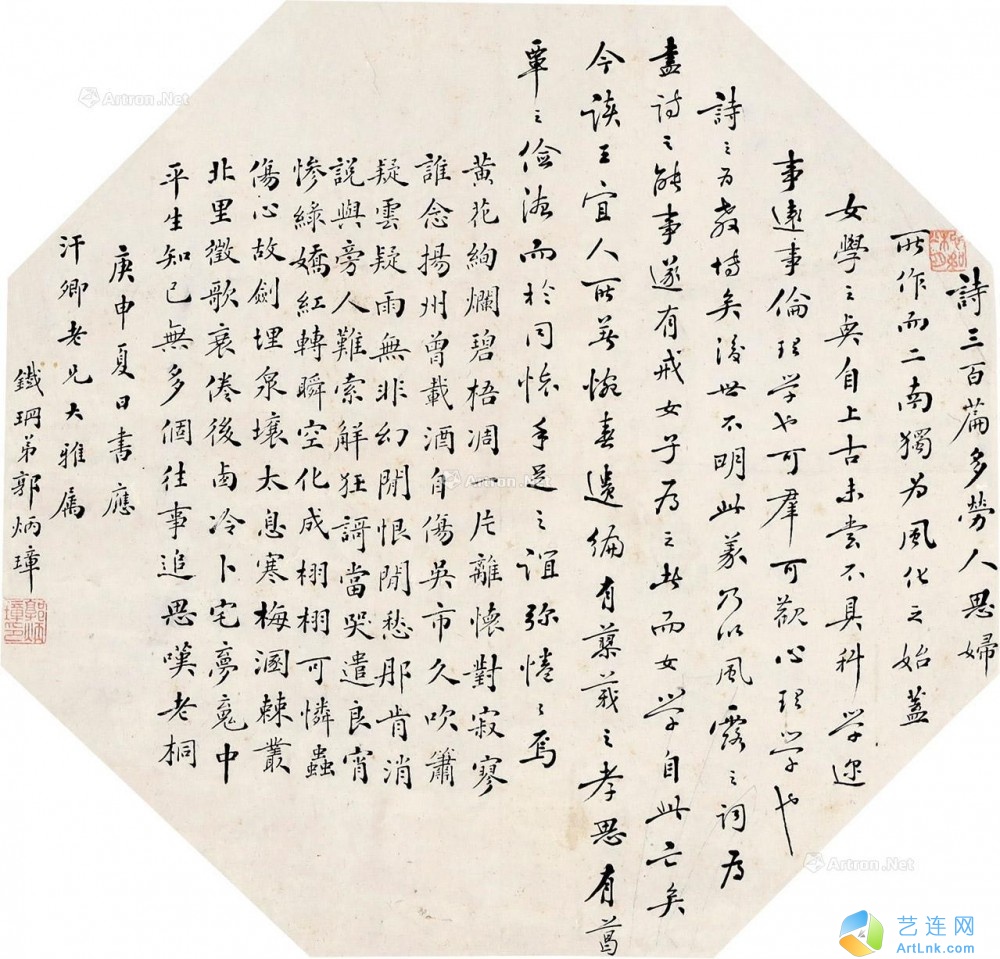 詩三百篇多勞人思婦
所作而二南獨为風化之始蓋
女學之興自上古未嘗不具科学迩
事遠事倫理学也可羣可歓心理学也
詩之为教博矣後世不明此義乃以風露之詞为
盡詩之能事遂有戒女子为之者而女学自此亡矣
今读王宜人所著惋春遺编有蓼莪之孝思有葛
覃之儉德而於同怀手足之誼弥惓之焉
黄花絢爛碧梧凋片片離懷對寂寥
誰念揚州曾載酒自傷吳市久吹簫
疑雲疑雨無非幻閒恨閒愁那肯消
説與旁人難索解狂謌當哭遣良宵
慘綠嬌紅轉瞬空化成栩栩可憐蟲
傷心故劍埋泉壤太息寒梅溷棘叢
北里徵歌衰倦後卤冷卜宅夢魂中
平生知己無多個往事追思嘆老桐
庚申夏日書應
汗卿老兄大雅属
鐵珊弟郭炳璋
郭炳璋印
Artron.Net
Artron.Net
Artron.Net
Artron.Net
艺连网
ArtLnk.com